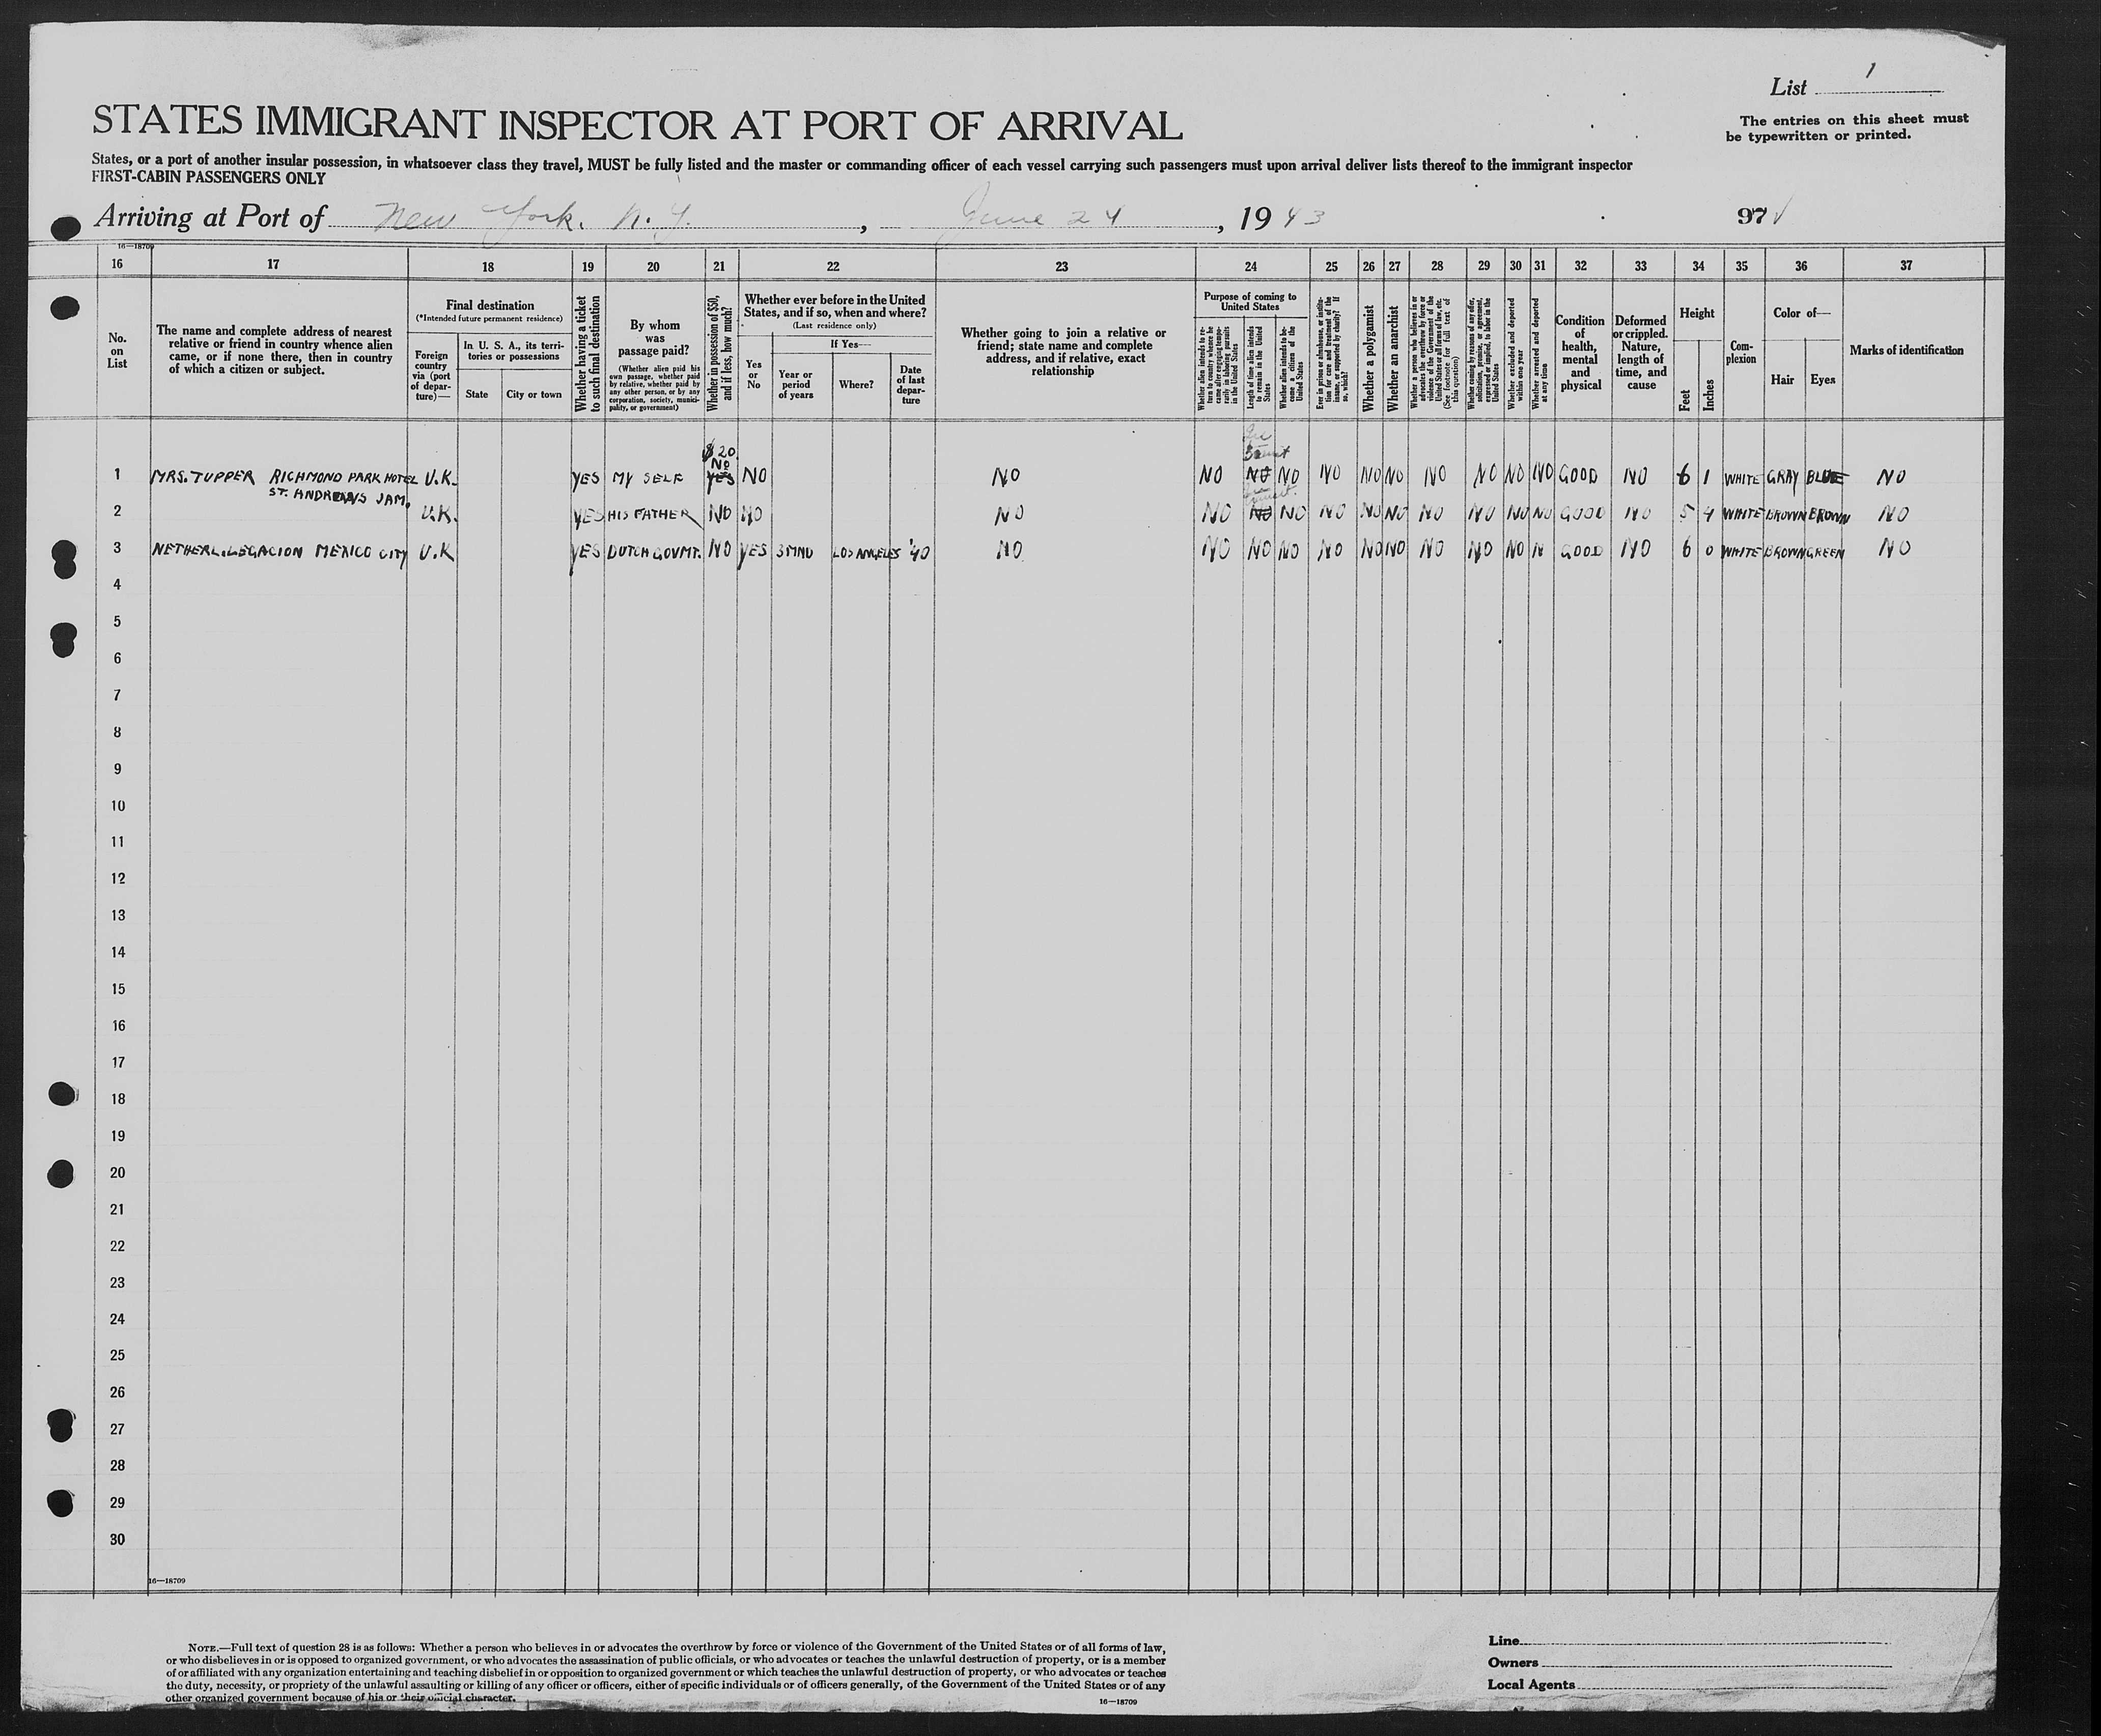 List 1
STATES IMMIGRANT INSPECTOR AT PORT OF ARRIVAL
The entries on this sheet must
be typewritten or printed.
States, or a port of another insular possession, in whatsoever class they travel, MUST be fully listed and the master or commanding officer of each vessel carrying such passengers must upon arrival deliver lists thereof to the immigrant inspector
FIRST-CABIN PASSENGERS ONLY
Arriving at Port of New York. N.Y. , June 24 , 1943 97
16—18709
16 17 18 19 20 21 22 23 24 25 26 27 28 29 30 31 32 33 34 35 36 37
No.
on
List
The name and complete address of nearest
relative or friend in country whence alien
came, or if none there, then in country
of which a citizen or subject.
Final destination
(*Intended future permanent residence)
Foreign
country
via (port
of depar-
ture)—
In U. S. A., its terri-
tories or possessions
State
City or town
Whether having a ticket
to such final destination
By whom
was
passage paid?
(Whether alien paid his
own passage, whether paid
by relative, whether paid by
any other person, or by any
corporation, society, munici-
pality, or government)
Whether in possession of $50,
and if less, how much?
Whether ever before in the United
States, and if so, when and where?
(Last residence only)
Yes
or
No
If Yes—
Year or
period
of years
Where?
Date
of last
depar-
ture
Whether going to join a relative or
friend; state name and complete
address, and if relative, exact
relationship
Purpose of coming to
United States
Whether alien intends to re-
turn to country whence he
came after engaging tempo-
rarily in laboring pursuits
in the United States
Length of time alien intends
to remain in the United
States
Whether alien intends to be-
come a citizen of the
United States
Ever in prison or almshouse, or institu-
tion for care and treatment of the
insane, or supported by charity? If
so, which?
Whether a polygamist
Whether an anarchist
Whether a person who believes in or
advocates the overthrow by force or
violence of the Government of the
United States or all forms of law, etc.
(See footnote for full text of
this question)
Whether coming by reason of any offer,
solicitation, promise, or agreement,
expressed or implied, to labor in the
United States
Whether excluded and deported
within one year
Whether arrested and deported
at any time
Condition
of
health,
mental
and
physical
Deformed
or crippled.
Nature,
length of
time, and
cause
Height
Feet
Inches
Com-
plexion
Color of—
Hair
Eyes
Marks of identification
$20
No
1 MRS. TUPPER RICHMOND PARK HOTEL U.K. YES MY SELF YES NO NO NO NO NO NO NO NO NO NO NO NO GOOD NO 6 1 WHITE GRAY BLUE NO
ST. ANDREWS JAM.
2 U.K. YES HIS FATHER NO NO NO NO NO NO NO NO NO NO NO NO NO GOOD NO 5 4 WHITE BROWN BROWN NO
3 NETHERL. LEGACION MEXICO CITY U.K YES DUTCH GOVMT. NO YES 3 LOS ANGELES '40 NO NO NO NO NO NO NO NO NO NO N GOOD NO 6 0 WHITE BROWN GREEN NO
4
5
6
7
8
9
10
11
12
13
14
15
16
17
18
19
20
21
22
23
24
25
26
27
28
29
30
16—18709
NOTE.—Full text of question 28 is as follows: Whether a person who believes in or advocates the overthrow by force or violence of the Government of the United States or of all forms of law,
or who disbelieves in or is opposed to organized government, or who advocates the assassination of public officials, or who advocates or teaches the unlawful destruction of property, or is a member
of or affiliated with any organization entertaining and teaching disbelief in or opposition to organized government or which teaches the unlawful destruction of property, or who advocates or teaches
the duty, necessity, or propriety of the unlawful assaulting or killing of any officer or officers, either of specific individuals or of officers generally, of the Government of the United States or of any
other organized government because of his or their official character.
16—18709
Line
Owners
Local Agents